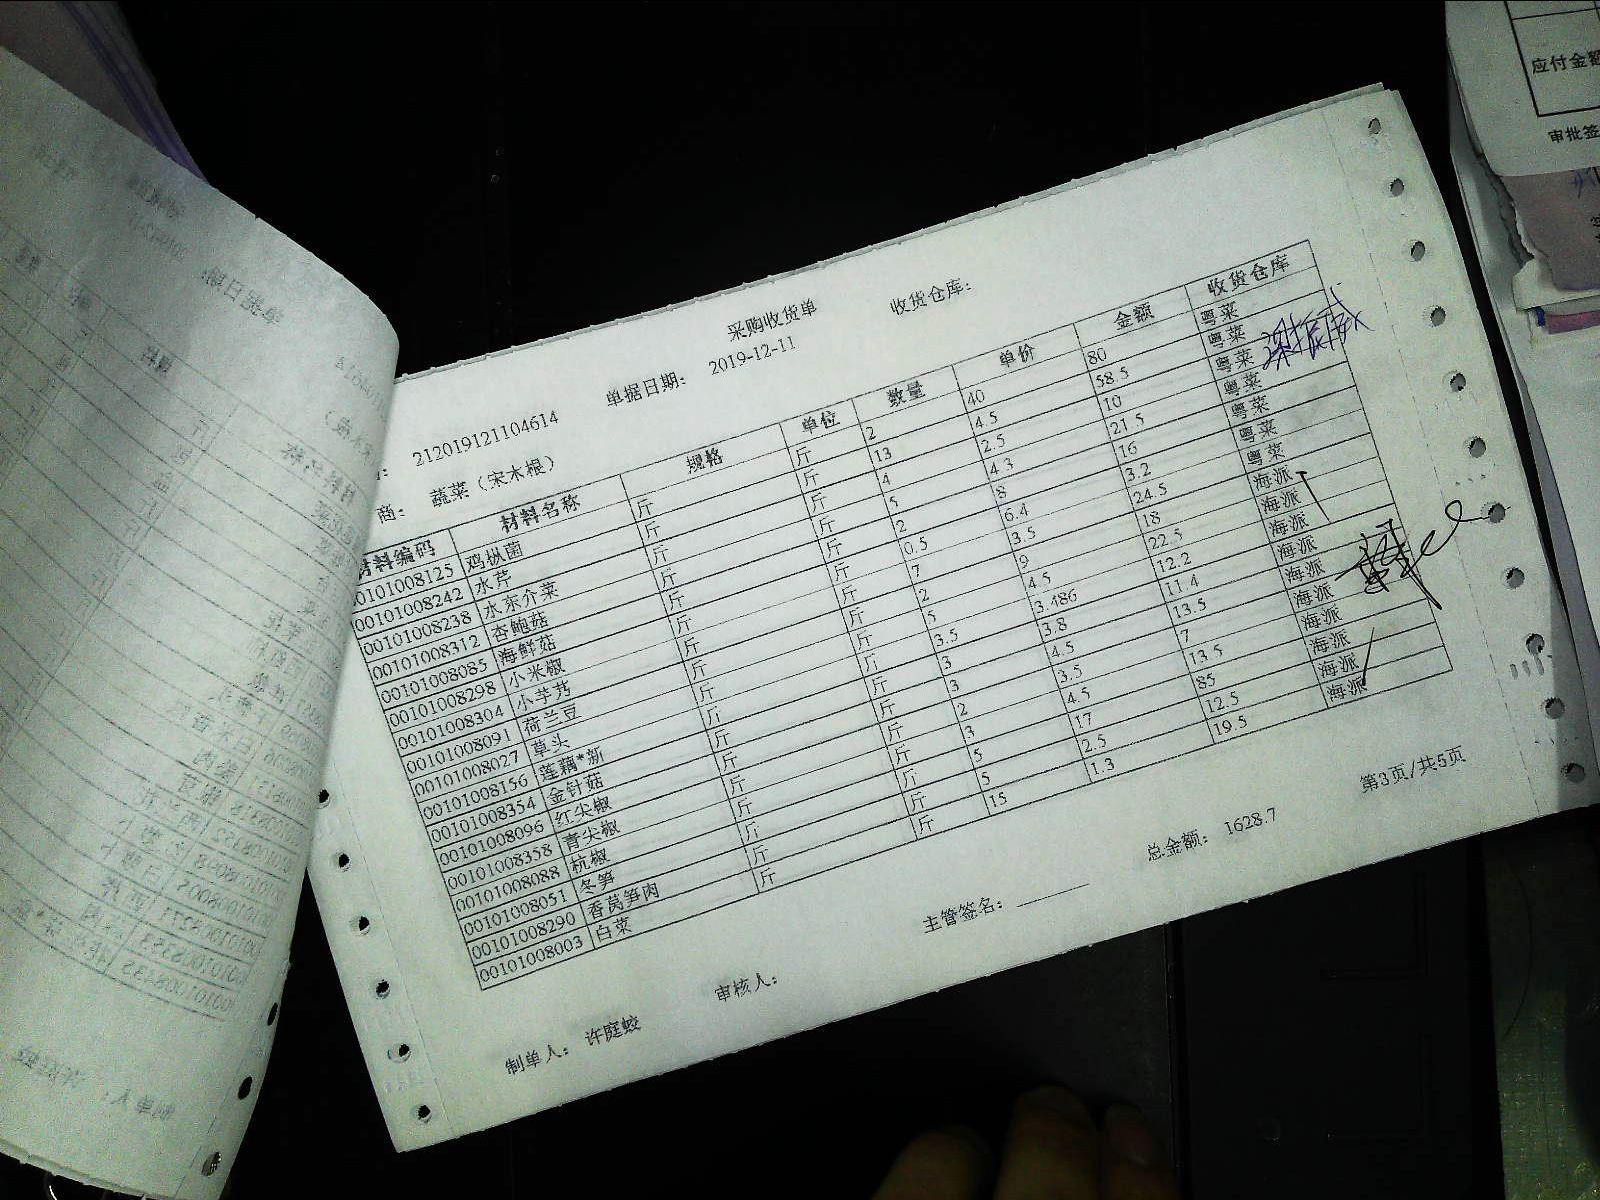 采购收货单
212019121104614 单据日期: 2019-12-11 收货仓库:
商: 蔬菜（宋木根）
材料编码 材料名称 规格 单位 数量 单价 金额 收货仓库
0101008125 鸡枞菌 斤 斤 2 40 80 粤菜
00101008242 水芹 斤 斤 13 4.5 58.5 粤菜
00101008238 水东介菜 斤 斤 4 2.5 10 粤菜
00101008312 杏鲍菇 斤 斤 5 4.3 21.5 粤菜
00101008085 海鲜菇 斤 斤 2 8 16 粤菜
00101008298 小米椒 斤 斤 0.5 6.4 3.2 粤菜
00101008304 小芋艿 斤 斤 7 3.5 24.5 粤菜
00101008091 荷兰豆 斤 斤 2 9 18 海派
00101008027 草头 斤 斤 5 4.5 22.5 海派
00101008156 莲藕*新 斤 斤 3.5 3.486 12.2 海派
00101008354 金针菇 斤 斤 3 3.8 11.4 海派
00101008096 红尖椒 斤 斤 3 4.5 13.5 海派
00101008358 青尖椒 斤 斤 2 3.5 7 海派
00101008088 杭椒 斤 斤 3 4.5 13.5 海派
00101008051 冬笋 斤 斤 5 17 85 海派
00101008290 香莴笋肉 斤 斤 5 2.5 12.5 海派
00101008003 白菜 斤 斤 15 1.3 19.5 海派
制单人: 许庭蛟 审核人: 主管签名: 总金额: 1628.7 第3页/共5页
应付金额
审批签